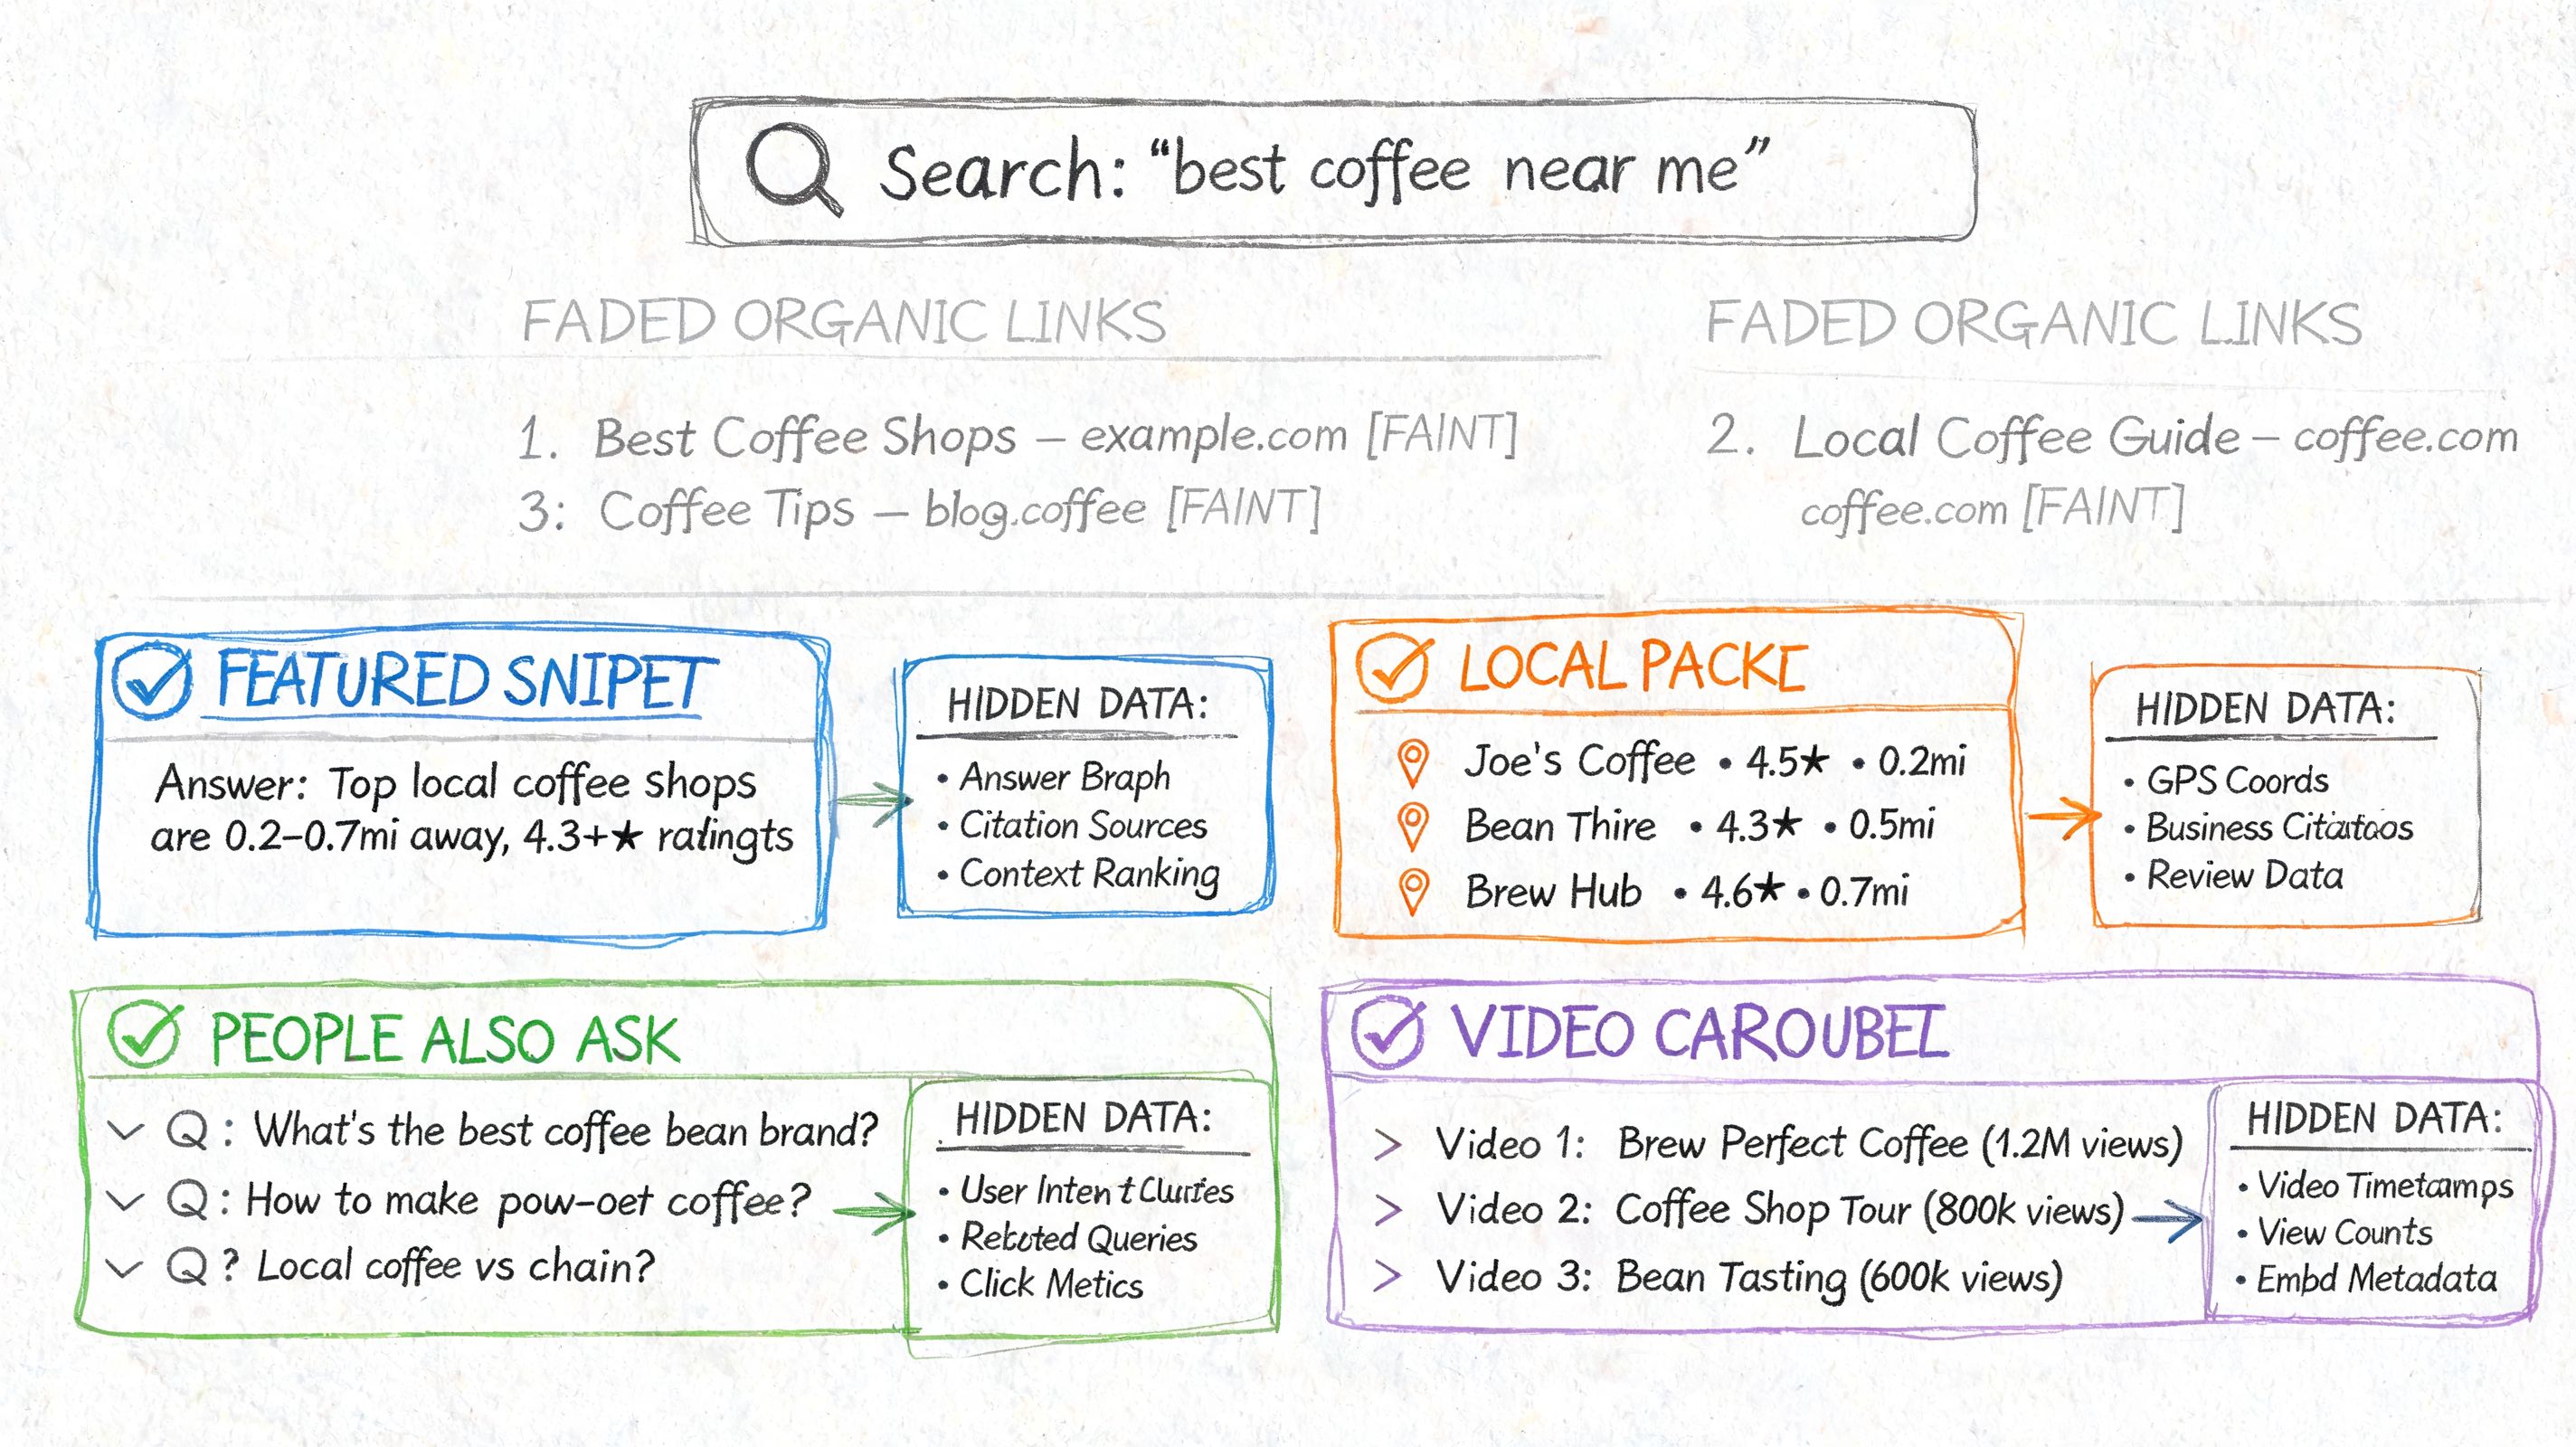 Search: “best coffee near me”
FADED ORGANIC LINKS
1. Best Coffee Shops – example.com [FAINT]
3: Coffee Tips – blog.coffee [FAINT]
FADED ORGANIC LINKS
2. Local Coffee Guide – coffee.com
coffee.com [FAINT]
FEATURED SNIPET
Answer: Top local coffee shops
are 0.2–0.7mi away, 4.3+★
HIDDEN DATA:
• Answer Braph
• Citation Sources
• Context Ranking
LOCAL PACKE
Joe's Coffee • 4.5★ • 0.2mi
Bean Thire • 4.3★ • 0.5mi
Brew Hub • 4.6★ • 0.7mi
HIDDEN DATA:
• GPS Coords
• Business
• Review Data
PEOPLE ALSO ASK
Q: What's the best coffee bean brand?
Q: How to make pow-oet coffee?
Q? Local coffee vs chain?
HIDDEN DATA:
• User Inten t
• Queries
• Click Metics
VIDEO CAROUBEL
> Video 1: Brew Perfect Coffee (1.2M views)
> Video 2: Coffee Shop Tour (800k views)
> Video 3: Bean Tasting (600k views)
HIDDEN DATA:
• Video
• View Counts
• Embd Metadata